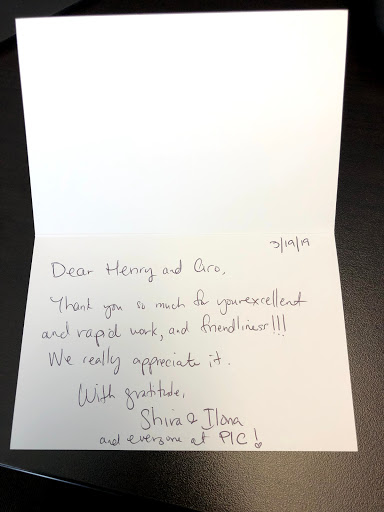 3/19/19
Dear Henry and Ciro,
Thank you so much for your excellent
and rapid work, and friendliness!!!
We really appreciate it.
With gratitude,
Shira & Ilana
and everyone at PIC!